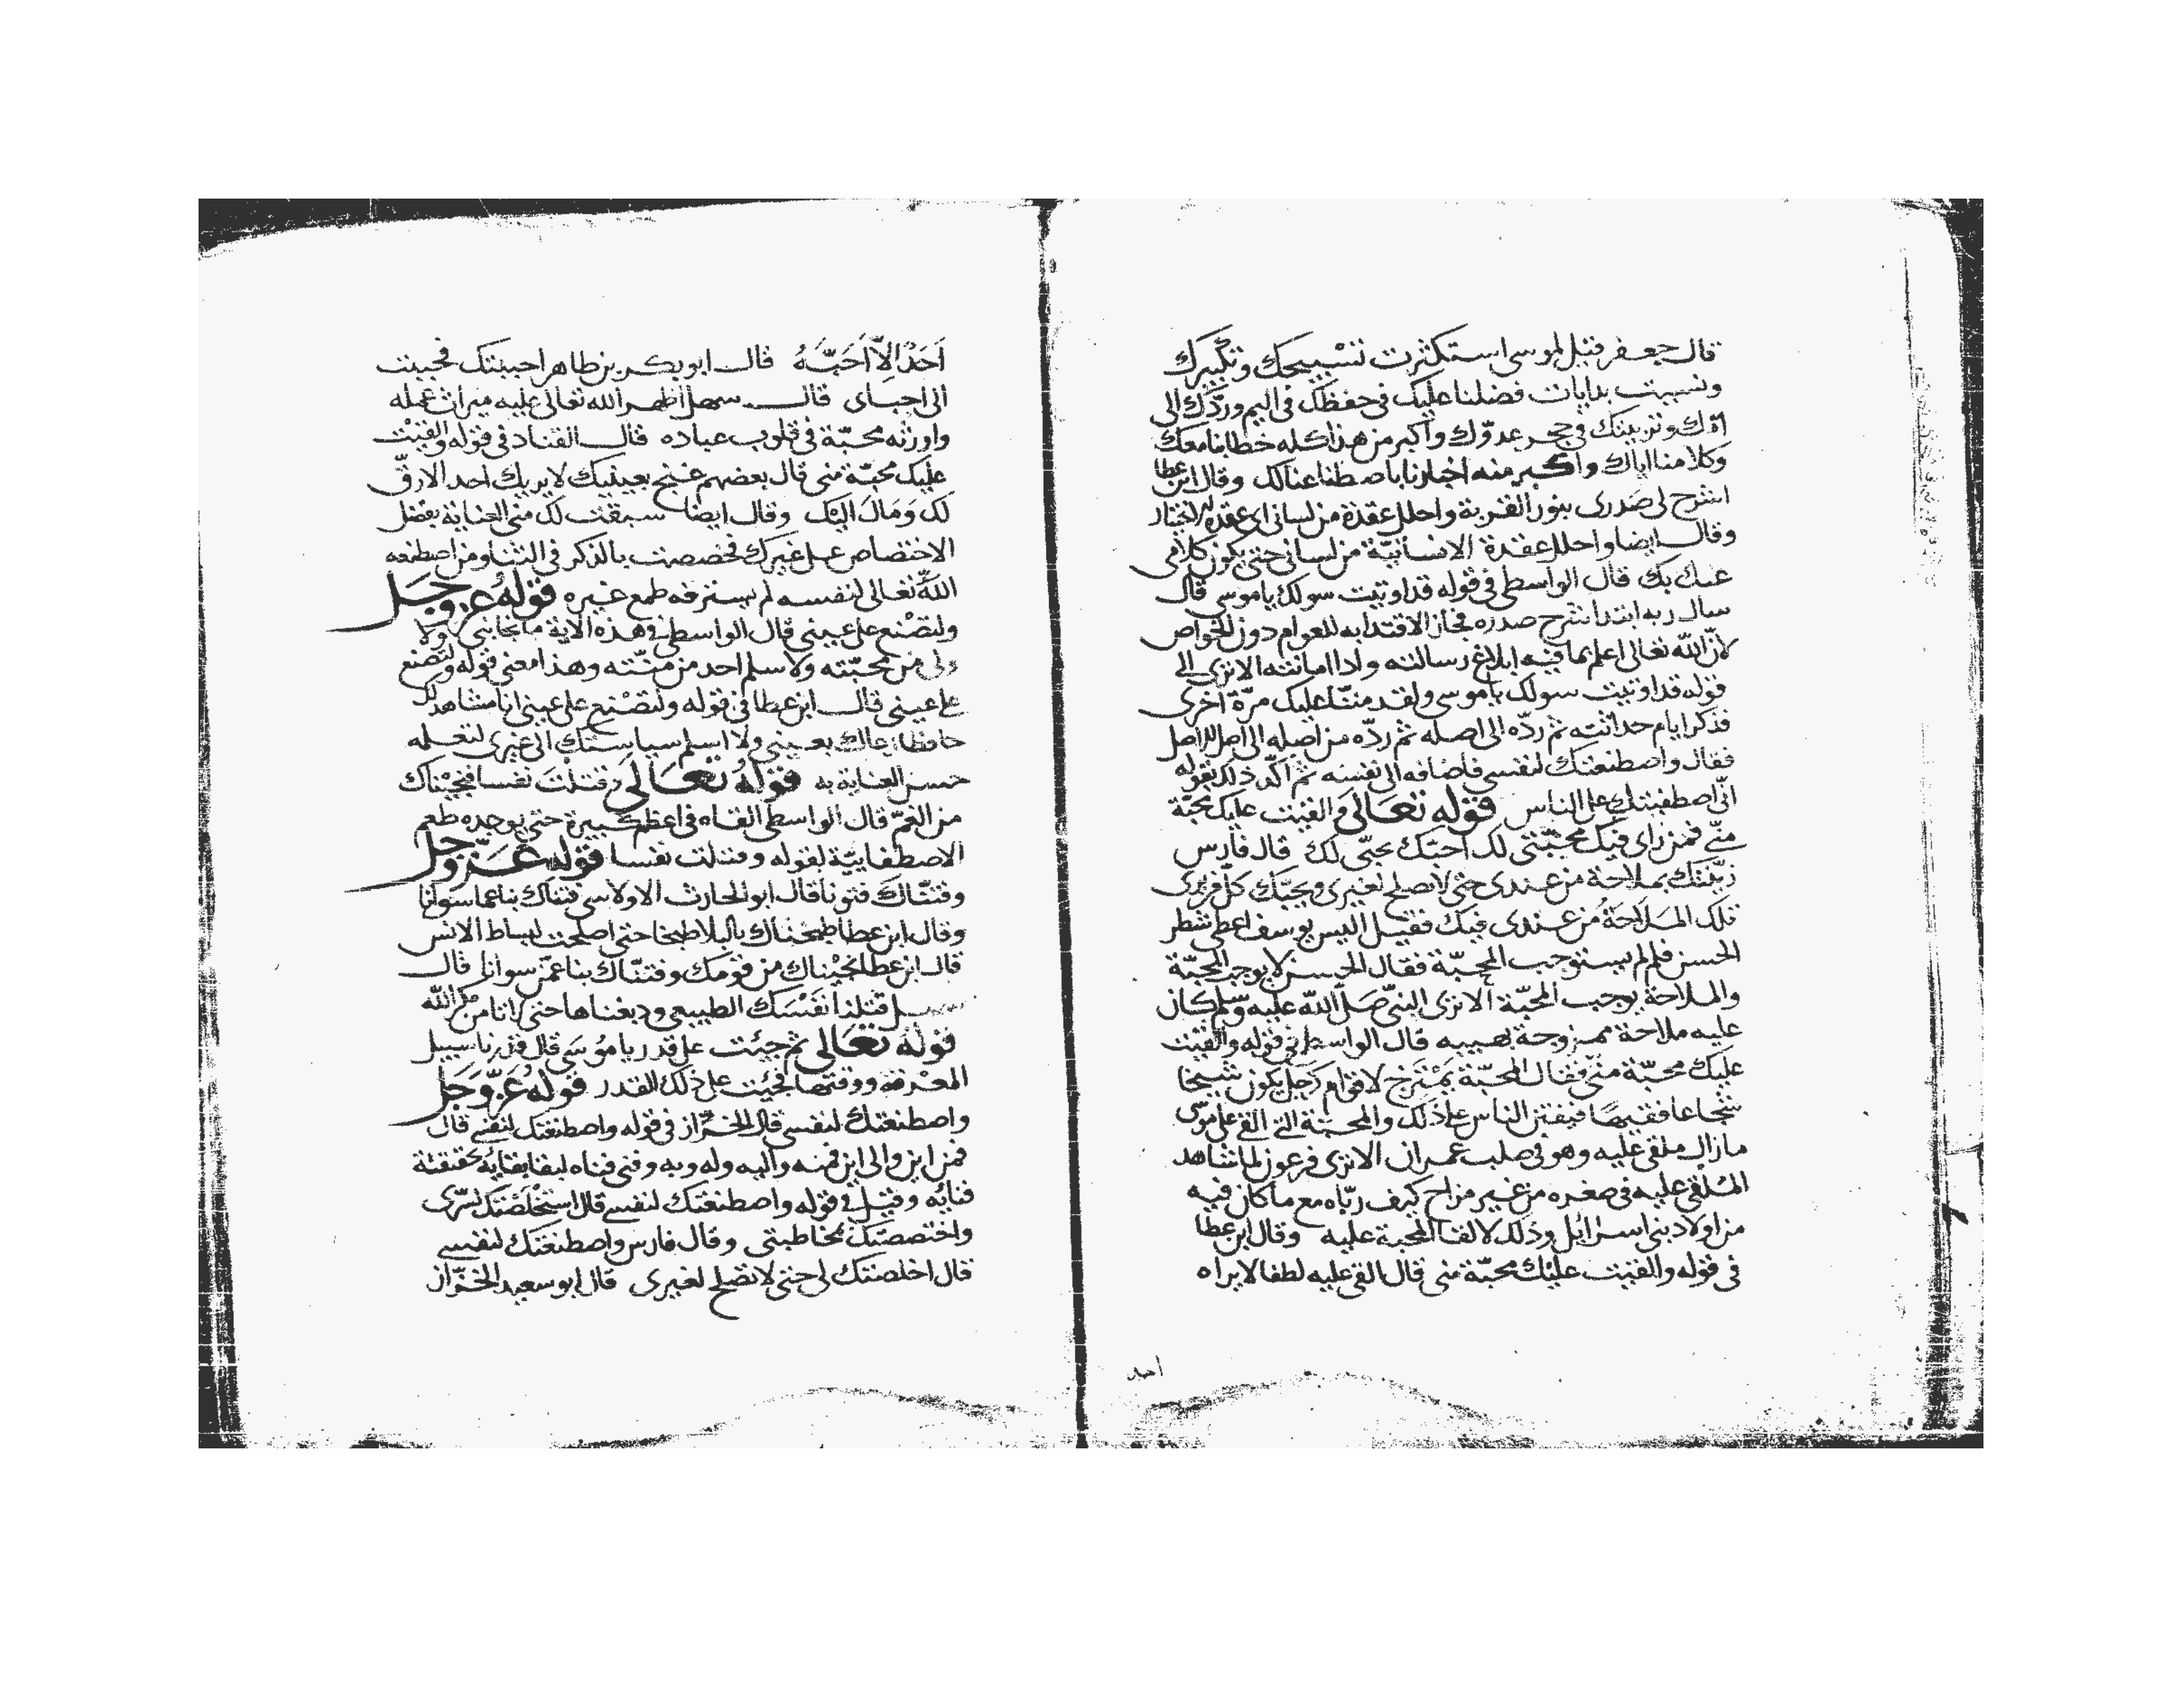 قال جعفر قيل لموسى استكثرت تسبيحك وتكبيرك
ونسيت بدايات فضلنا عليك في حفظك في اليم وردك الى
امك وتربيتك في حجر عدوّك واكبر من هذا كله خطابنا معك
وكلامنا اياك واكبر منه اخبارنا باصطناعنا لك وقال ابن عطا
اشرح لى صدرى بنور القربة واحلل عقدة من لسانى اى عقدة
وقال ايضا واحلل عقدة الانسانيّة من لسانى حتى يكون كلامى
عنك بك قال الواسطى فى قوله قد اوتيت سولك ياموسى قال
سال ربه ابتدا شرح صدره فجاز الاقتدا به للعوام دون الخواص
لان الله تعالى اعلم بما فيه ابلاغ رسالته وادا امانته الا ترى الى
قوله قد اوتيت سولك ياموسى ولقد مننّا عليك مرّة اخرى
فذكر ايام حداثته ثم ردّه الى اصله ثم ردّه من اصله الى اصل الاصل
فقال واصطنعتك لنفسى فاضافه الى نفسه ثم اكّد ذلك بقوله
انّى اصطفيتك على الناس قوله تعالى والقيت عليك محبّة
منّى فمن راى فيك محبّتى لك احبّك بحبّى لك قال فارس
زيّنتك بملاحة من عندى حتى لا تصلح لغيرى ويحبّك كل من يرى
تلك الملاحة من عندى فيك فقيل اليس يوسف اعطى شطر
الحسن فلم لم يستوجب المحبّة فقال الحسن لا يوجب المحبّة
والملاحة يوجب المحبّة الا ترى النبىّ صلّى الله عليه وسلم كان
عليه ملاحة ممزوجة بهيبه قال الواسطى فى قوله والقيت
عليك محبّة منّى فقال المحبّة يمتزج لاقوام كرجل يكون شيخا
شجاعا فقيها فيفتن الناس على ذلك والمحبّة التى القى على موسى
مازال ملقى عليه وهو فى صلب عمران الا ترى فرعون لما شاهد
الملقى عليه فى صغره من غير مزاح كيف ربّاه مع ما كان فيه
من اولاد بنى اسرائيل وذلك لالقا المحبة عليه وقال ابن عطا
فى قوله والقيت عليك محبّة منى قال القى عليه لطفا لا يراه
احد
اَحَدٌ اِلَّا اَحَبَّهُ قال ابو بكر بن طاهر احببتك فحببت
الى احباى قال سهل اظهر الله تعالى عليه ميراث عمله
واورثه محبّة فى قلوب عباده قال القناد فى قوله والقيت
عليك محبّة منى قال بعضهم غنج بعينيك لا يريك احد الا رقّ
لك ومال اليك وقال ايضا سبقت لك منى العناية بفضل
الاختصاص على غيرك فخصصت بالذكر فى الثنا ومن اصطنعه
الله تعالى لنفسه لم يسترقه طمع غيره قوله عز وجل
ولتصنع على عينى قال الواسطى فى هذه الاية ما نجا نبى ولا
ولى من محبّته ولا سلم احد من منّته وهذا معنى قوله ولتصنع
على عينى قال ابن عطا فى قوله ولتصنع على عينى انا مشاهد لك
حافظا ارعاك بعينى ولا اسلم سياستك الى غيرى لتعلم
حسن العناية به قوله تعالى وقتلت نفسا فنجيناك
من الغمّ قال الواسطى القاه فى اعظم كبيرة حتى يوجده طعم
الاصطفاييّة لقوله وقتلت نفسا قوله عزّ وجل
وفتنّاك فتونا قال ابو الحارث الاولاسى فتناك بنا عما سوانا
وقال ابن عطا طبخناك بالبلا طبخا حتى اصلحت لبساط الانس
قال ابن عطا نجيناك من قومك وفتنّاك بنا عمّن سوانا قال
سهل قتلنا نفسك الطبيعى ودبغناها حتى لا تامن مكر الله
قوله تعالى ثم جئت على قدر ياموسى قال قدرنا سبيل
المعرفة ووقتها فجئت على ذلك القدر قوله عزّ وجل
واصطنعتك لنفسى قال الخرّاز فى قوله واصطنعتك لنفسى قال
فمن اين والى اين فمنه واليه وله وبه وفنى فناه لبقا بقايه بحقيقة
فنايه وقيل فى قوله واصطنعتك لنفسى قال استخلصتك لسرّى
واختصصتك بمخاطبتى وقال فارس واصطنعتك لنفسى
قال اخلصتك لى حتى لا تصلح لغيرى قال ابو سعيد الخرّاز